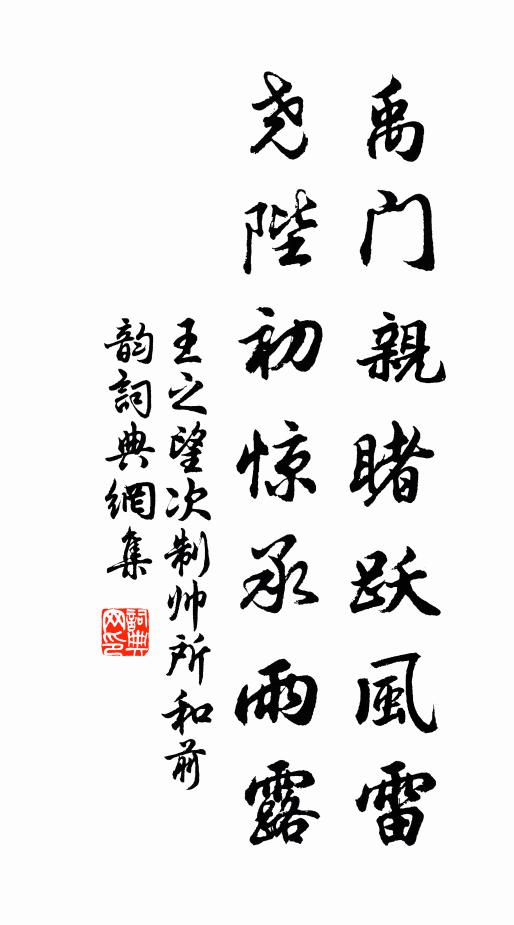 禹门親睹跃風雷
尧陛初惊承雨露
王之望次制帅所和前
韵詞典網集
詞典网印